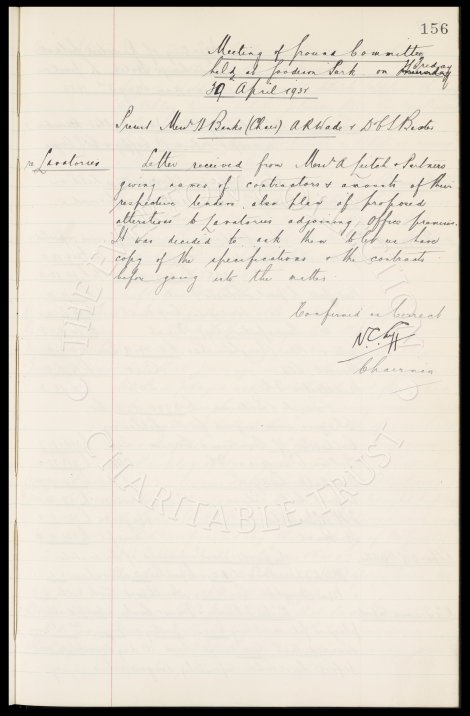 156
Meeting of Ground Committee
held at Goodison Park on Tuesday
April 1931
Present Messrs W Banks (Chair) A R Wade & D C S Baxter
re Lavatories Letter received from Messrs A Leitch & Partners
giving names of contractors & amounts of their
respective tenders, also plan of proposed
alterations to Lavatories adjoining Office premises.
It was decided to ask them to let us have
copy of the specifications & the contracts
before going into the matter.
Confirmed as Correct
Chairman
CHARITABLE TRUST